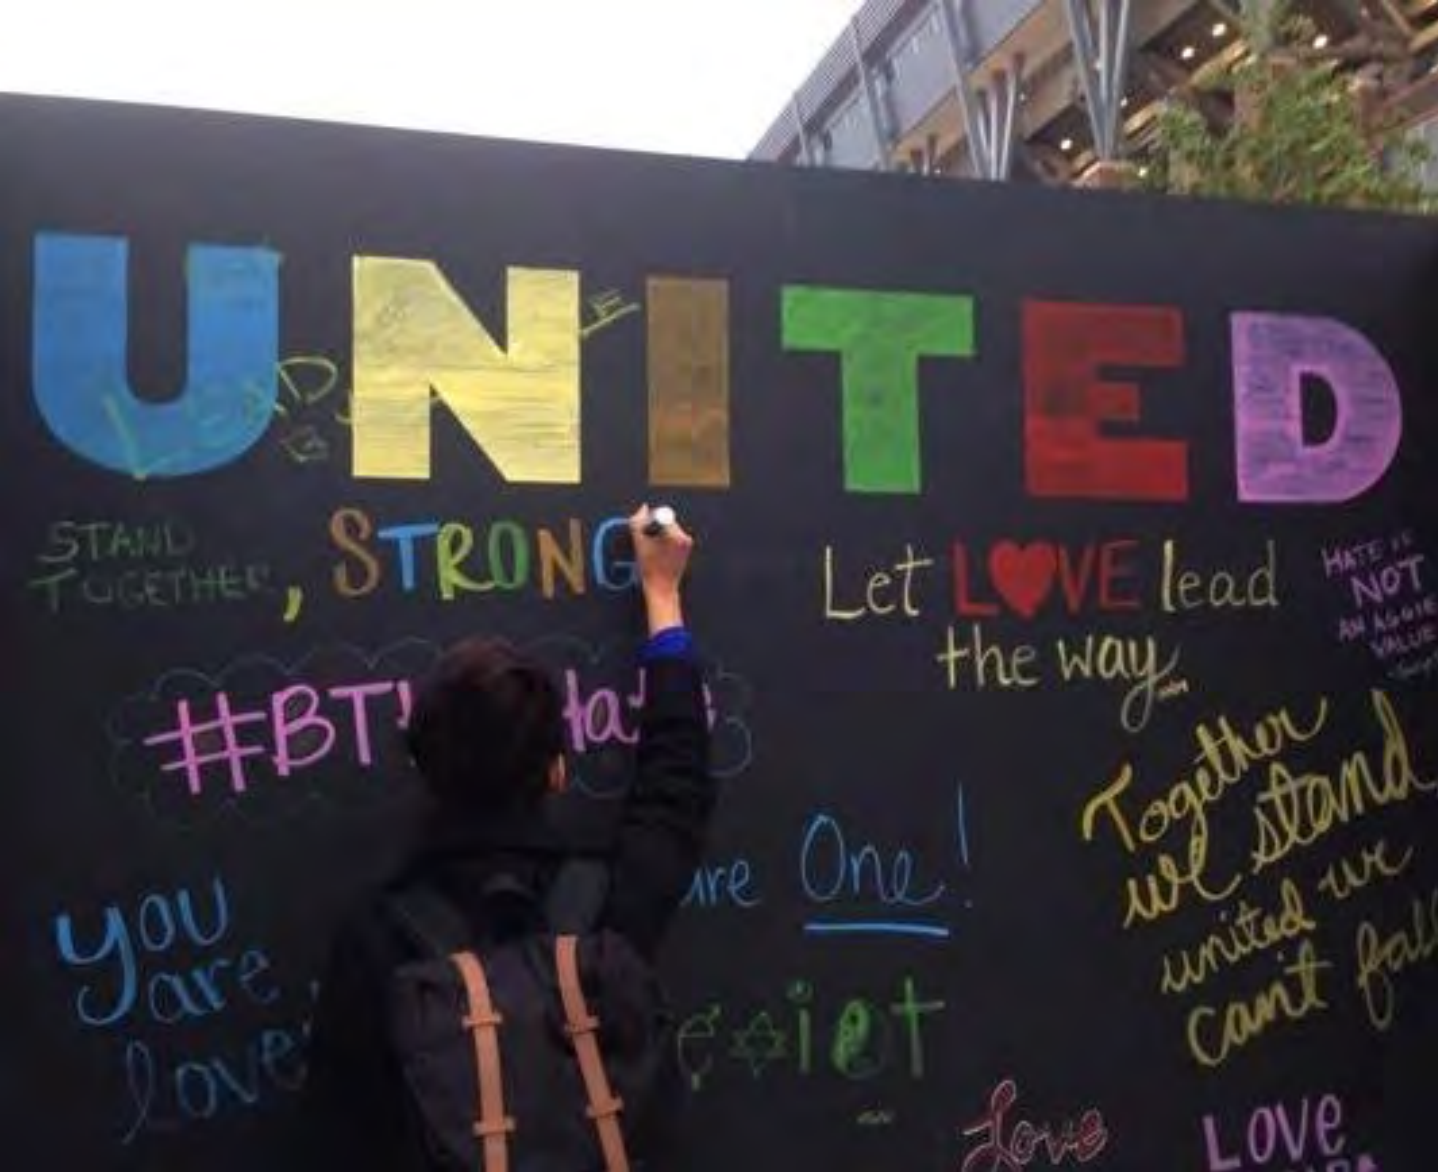 UNITED
STAND
TOGETHER, STRONG
Let LOVE lead
the way
HATE IS
NOT
AN AGGIE
VALUE
#BT
Together
we stand
united we
can't fall
are One!
you
are
love
exist
Love
LOVE